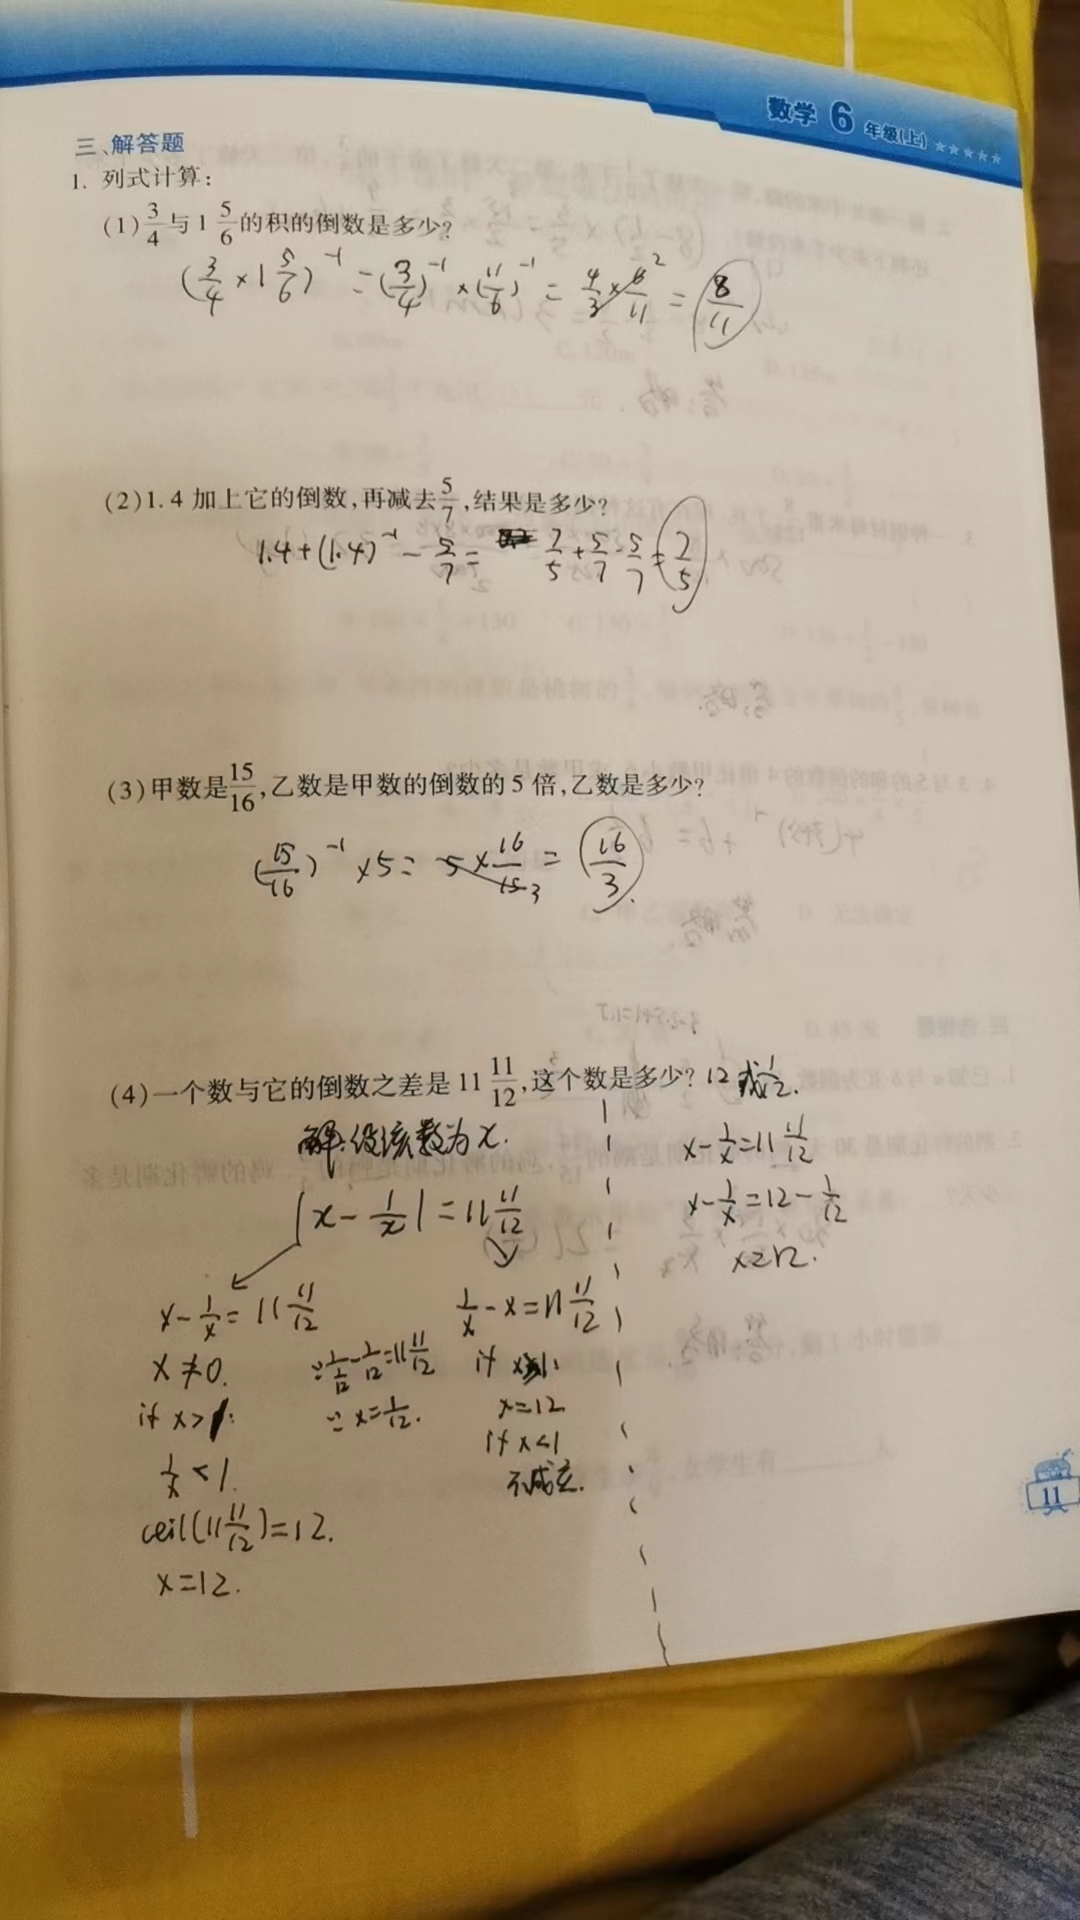 数学 6 年级(上) ★★★★★
三、解答题
1. 列式计算：
(1) 3/4 与 1 5/6 的积的倒数是多少？
(3/4 × 1 5/6)^-1 = (3/4)^-1 × (11/6)^-1 = 4/3 × 6/11 2 = 8/11
(2) 1.4 加上它的倒数，再减去 5/7，结果是多少？
1.4+(1.4)^-1 - 5/7 = 7/5 + 5/7 - 5/7 = 7/5
(3) 甲数是 15/16，乙数是甲数的倒数的 5 倍，乙数是多少？
(15/16)^-1 × 5 = 5 × 16/15 3 = 16/3.
(4) 一个数与它的倒数之差是 11 11/12，这个数是多少？12 或
解：设该数为x.
|x - 1/x| = 11 11/12
x - 1/x = 11 11/12
x ≠ 0.
if x>1:
1/x < 1.
ceil(11 11/12) = 12.
x = 12.
∵ - 1/12 = 11 11/12
∴ x = 1/12.
1/x - x = 11 11/12
if
x = 12
if x<1
不成立.
x - 1/x = 11 11/12
x - 1/x = 12 - 1/12
x = 12.
11